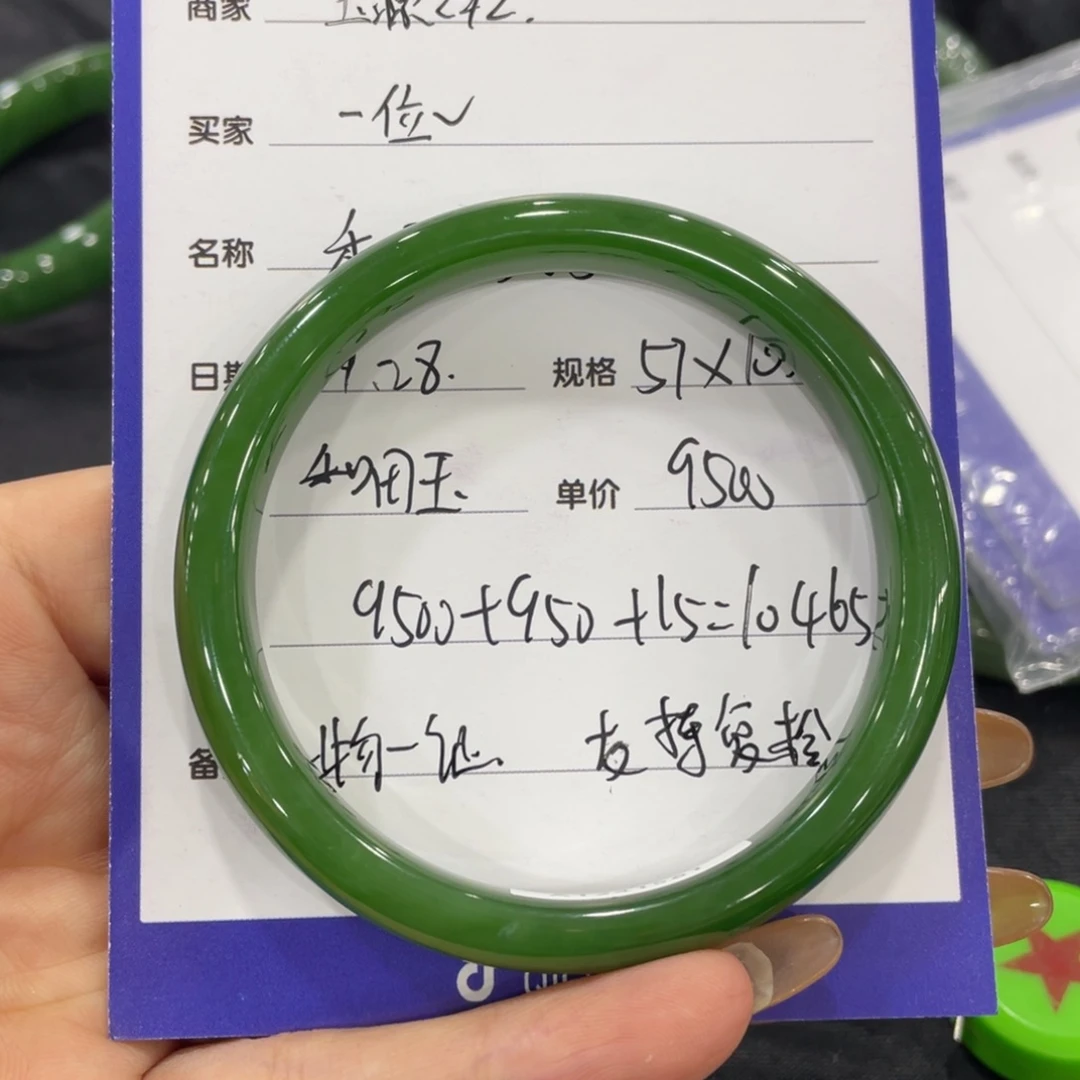 商家
买家 一位
名称
9.28. 规格 57×10.
和田玉. 单价 9500
9500+950+15=10465
备 物一证. 支持复检